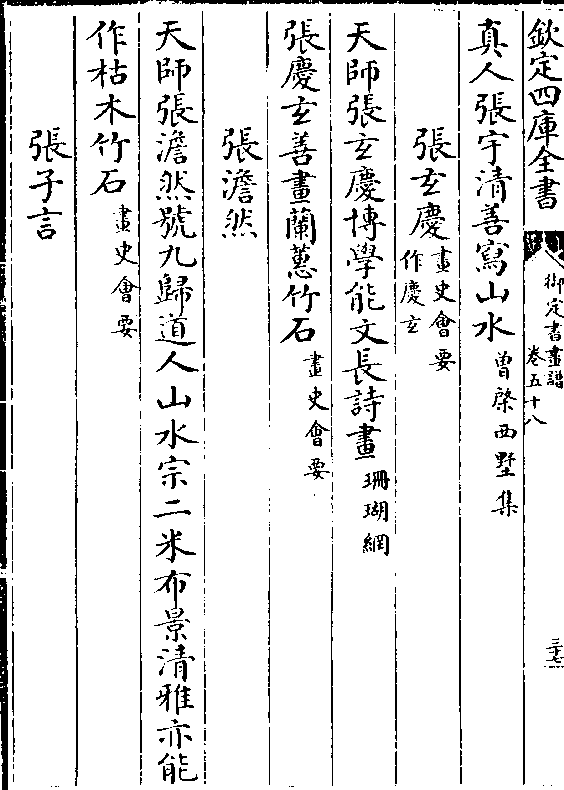 欽定四庫全書
御定書畫譜
卷五十八
三十七
真人張宇清善寫山水曾棨西墅集
張玄慶畫史會要作慶玄
天師張玄慶博學能文長詩畫珊瑚網
張慶玄善畫蘭蕙竹石畫史會要
張澹然
天師張澹然號九歸道人山水宗二米布景清雅亦能
作枯木竹石畫史會要
張子言